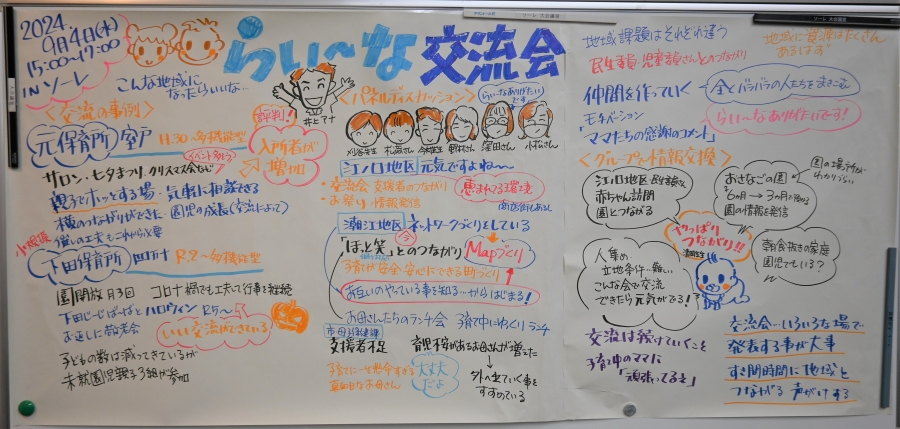 2024
9月4日(水)
15:00~17:00
INソーレ
らい~な 交流会
こんな地域に
なったらいいな…
井上マナ
〈交流の事例〉
元保育所 室戸 H.30~多機能型
評判!
入所者が
増加
イベント多数
サロン・七夕まつり クリスマス会など
親子でホッとする場・気軽に相談できる
横のつながりができた・園児の成長(交流によって)
下田保育所 四万十 R.2~多機能型
園開放月3回 コロナ禍でも工夫して行事を継続
下田じーじばーばと ハロウィン R5~
お返しに敬老会
いい交流ができている
子どもの数は減ってきているが
未就園児親子3組が参加
〈パネルディスカッション〉
らい~なありがたい
です
刈谷先生 松高さん 今村先生 野村さん 窪田さん 小松さん
江ノ口地区 元気ですよね~
・交流会・支援者のつながり
・お祭り・情報発信
恵まれてる環境
商店街もあるし
潮江地区 ネットワークづくりをしている
「ほっと笑」とのつながり
今
Mapづくり
子育てが安全・安心にできる町づくり
お互いのやっている事を知る…からはじまる!
お母さんたちのランチ会 子育て中にゆっくりランチ
市母子保健課
支援者不足
育児不安があるお母さんが増えた
子育てに一生懸命すぎる
真面目なお母さん
大丈夫
だよ
外へ出ていく事を
すすめている
地域課題はそれぞれ違う
地域に資源はたくさん
あるはず
民生委員・児童委員さんとのつながり
仲間を作っていく
全くバラバラの人たちをまきこむ
モチベーション
「ママたちの感謝のコメント」
らい~なありがたいです!
〈グループワーク情報交換〉
江ノ口地区・民生委員さん
赤ちゃん訪問
園とつながる
おさなごの園
6ヵ月→3ヵ月に始める
園の情報を発信
園の場所が
わかりづらい
やっぱり
つながり!!
朝食抜きの家庭
園児でもいる?
人集め・
立地条件…難しい
こんな会で交流
できたら元気がでる!
交流は続けていくこと
子育て中のママに
「頑張ってるネ」
交流会…いろいろな場で
発表する事が大事
すき間時間に地域と
つながる 声がけする